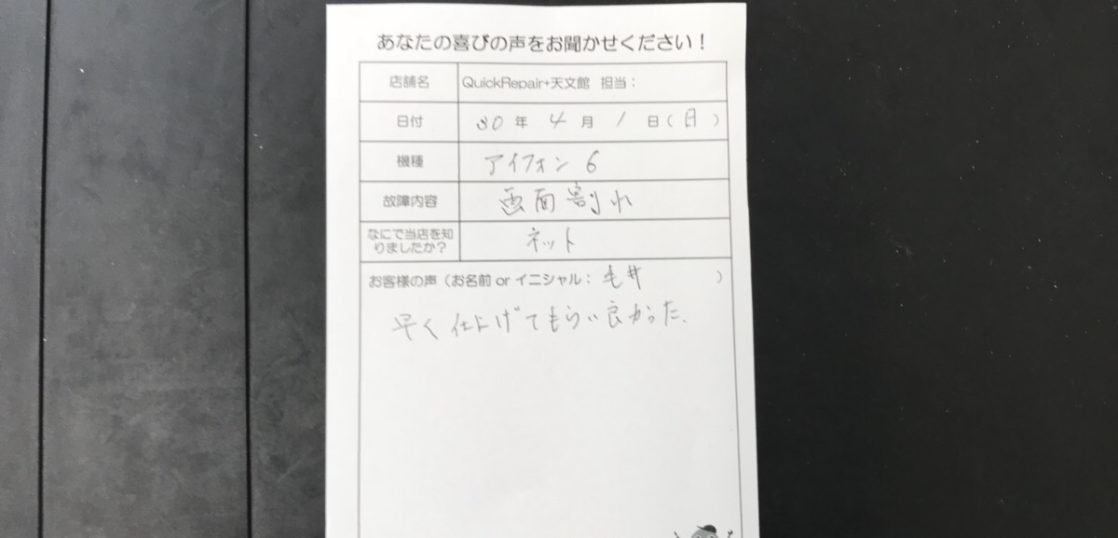 あなたの喜びの声をお聞かせください!
店舗名 QuickRepair+天文館 担当:
日付 30 年 4 月 1 日(日)
機種 アイフォン 6
故障内容 画面割れ
なにで当店を知りましたか? ネット
お客様の声(お名前 or イニシャル: 毛井 )
早く仕上げてもらい良かった.